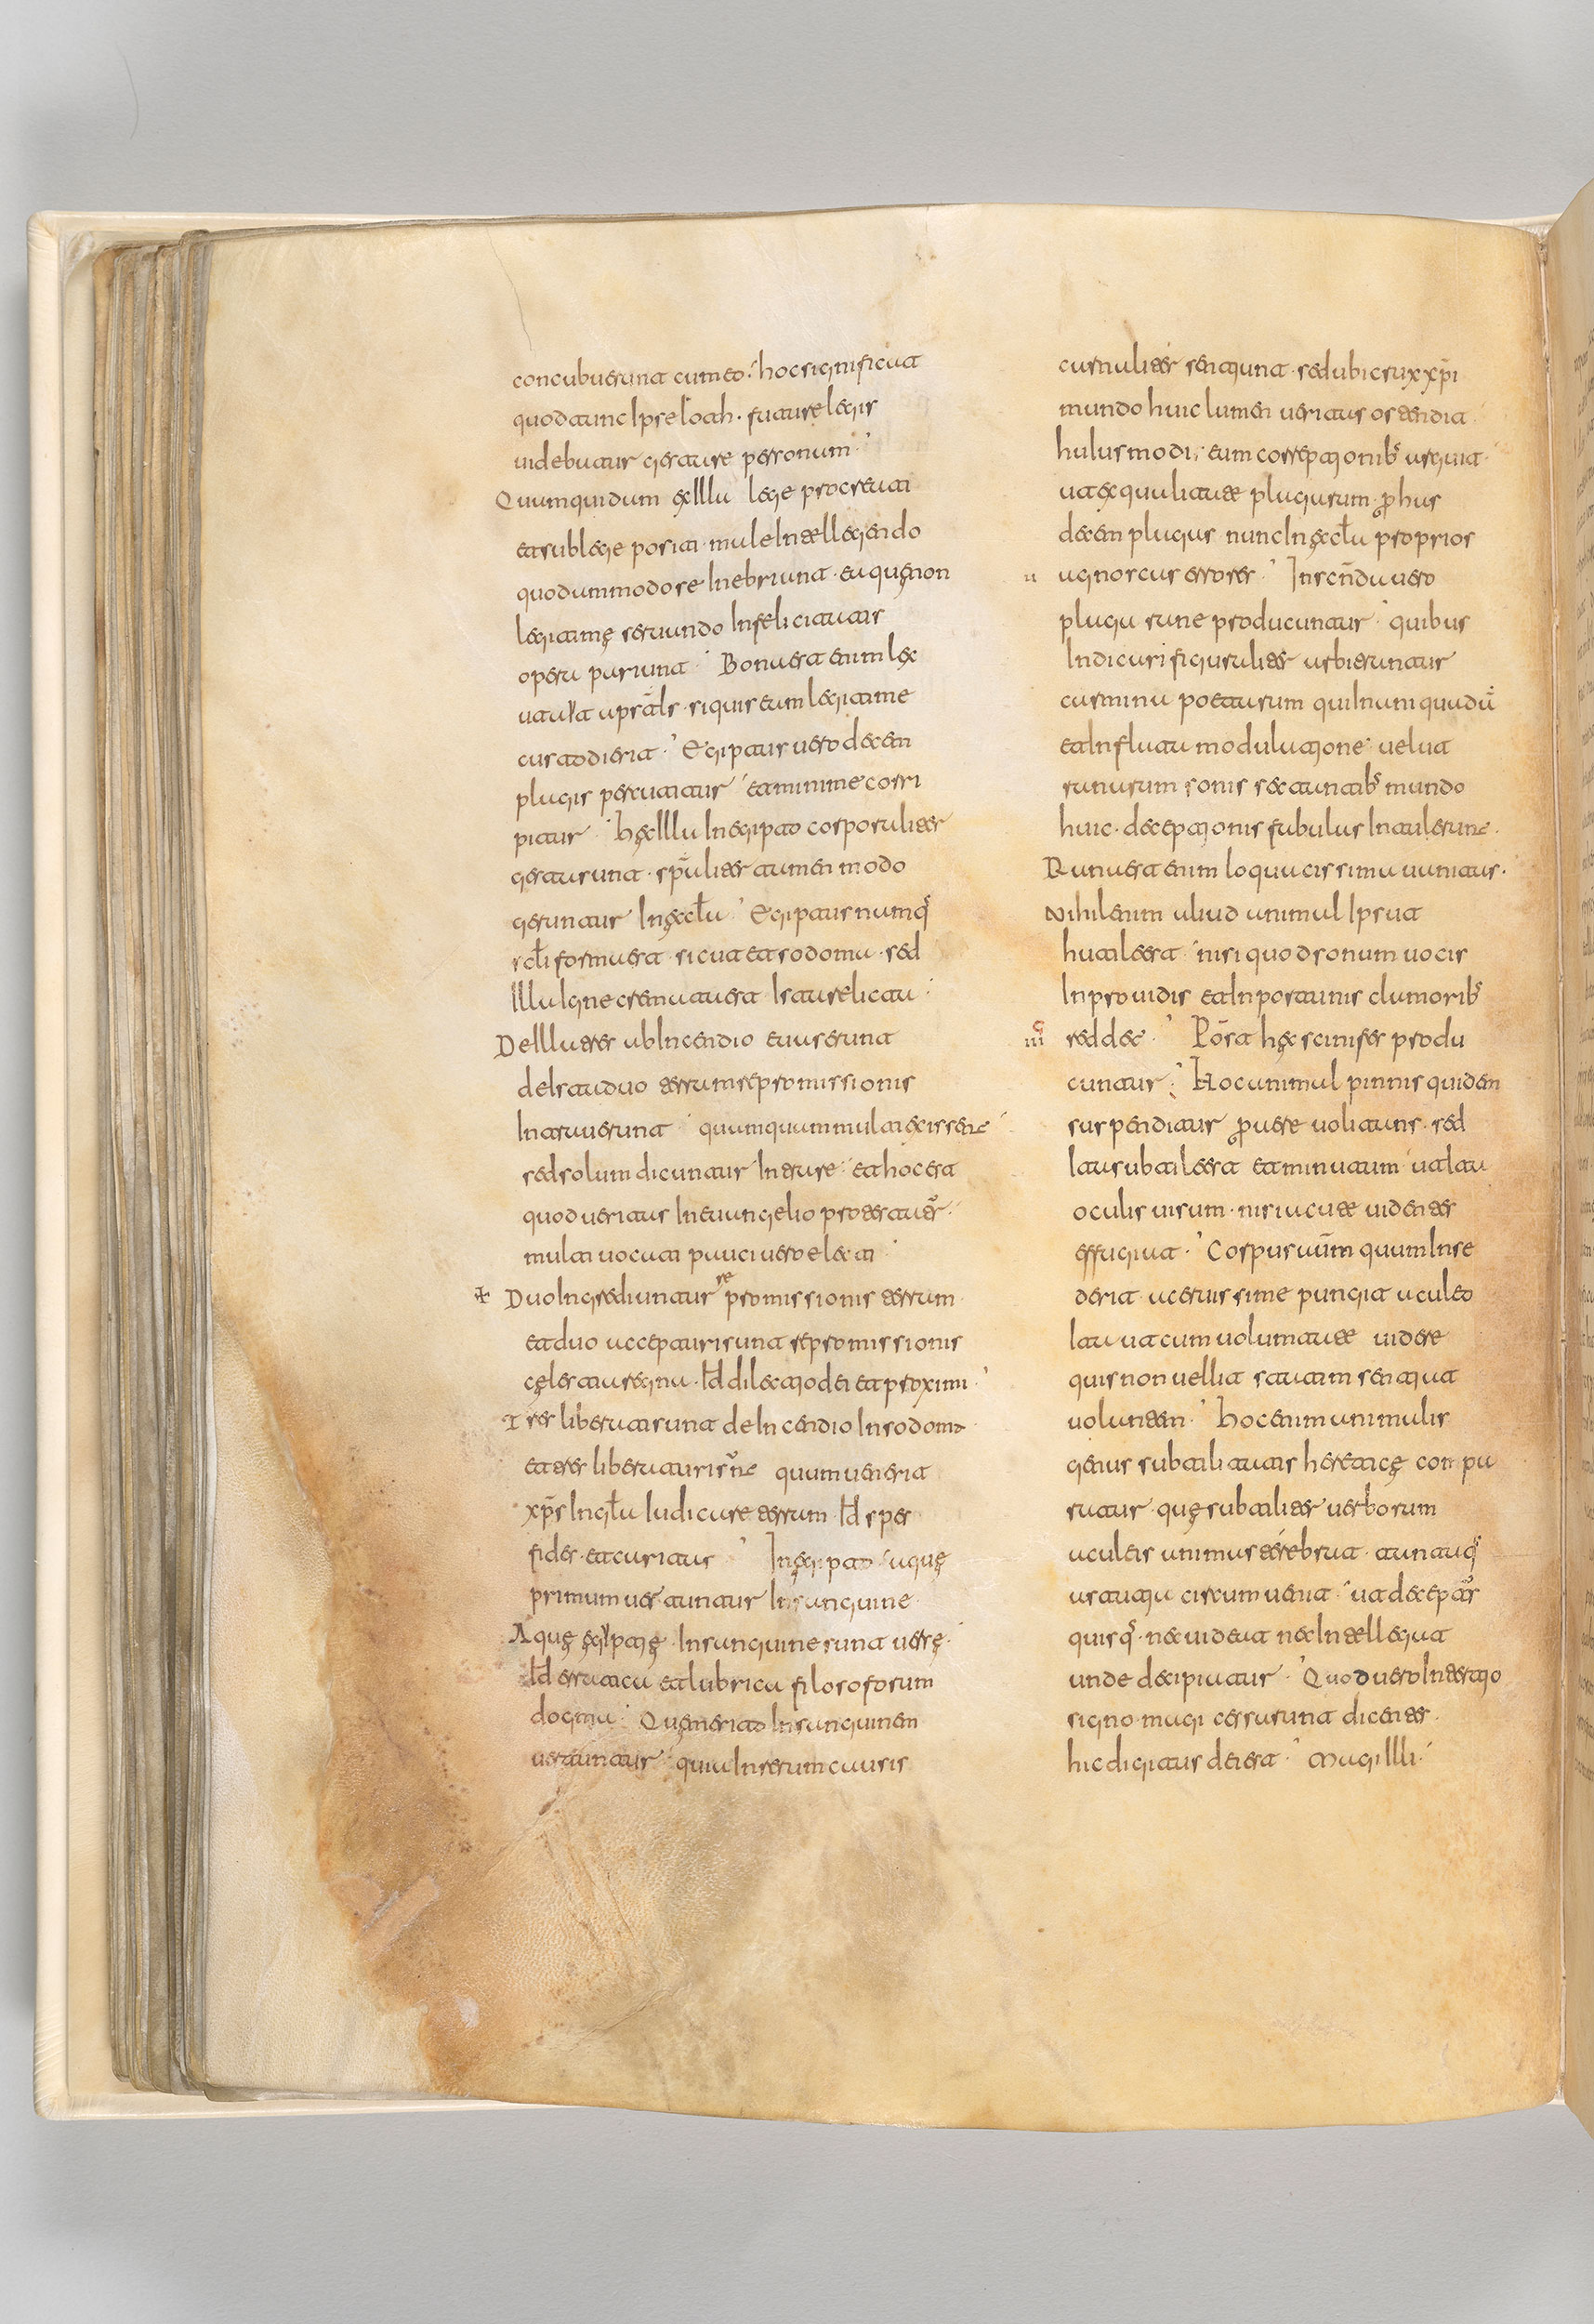 concubuerunt cum eo· hoc significat
quod tunc ipse loth· future legis
uidebatur gestare personam·
Quamquidam ex illa lege procreati
et sub lege positi· male intellegendo
quodammodo se inebriant· ea que non
legitime seruando infelicitatis
opera pariunt· Bona est enim lex
ut ait apstls· si quis eam legitime
custodierit· Egiptus uero decem
plagis percutitur et minime corri
pitur· Hec illa in egipto corporaliter
gesta sunt· spaliter tamen modo
geruntur in scla· Egiptus namq
scli forma est· sicut et sodoma· sed
illa igne cremata est ista relicta·
De illa tres ab incendio euaserunt
de ista duo terram repromissionis
intrauerunt· quamquam multi exissent
sed solum dicuntur intrare· et hoc est
quod ueritas in euangelio protestatur·
multi uocati pauci uero electi·
Duo ingrediuntur repromissionis terram
et duo accepturi sunt repromissionis
celestia regna· id dilectio dei et proximi·
Tres liberati sunt de incendio in sodoma
et tres liberaturi sunt quum uenerit
xps in gla iudicare terram id spes
fides· et caritas· In egipto aque
primum uertuntur in sanguine·
Aque egyptie in sanguine sunt uerse·
id erratica et lubrica filosoforum
dogma· Que merito in sanguinem
uertuntur· quia in rerum causis
carnaliter sentiunt· sed ubi crux xpi
mundo huic lumen ueritatis ostendit
huiusmodi· eum correptionib arguit·
ut ex qualitate plagarum· phas
decem plagas nunc in secla proprios
ii agnoscat errores· In scnda uero
plaga rane producuntur· quibus
indicari figuraliter arbitrantur
carmina poetarum qui inani quadam
et inflata modulatione· uelut
ranarum sonis et cantib mundo
huic· deceptionis fabulas intulerunt·
Rana est enim loquacissima uanitas·
Nihil enim aliud animal ipsut
hutile est· nisi quod sonum uocis
inprouidis et inportunis clamorib
iii reddet· Post hec scinifes produ
cuntur· Hoc animal pinnis quidem
suspenditur p aere uolitans· sed
ita subtile est et minutum ut ita
oculis uisum· nisi acute uidentes
effugiat· Corpus autem quum inse
derit· acerrissime pungit aculeo
ita ut cum uolitante uidere
quis non uellit· statim sentiat
uolantem· Hoc enim animalis
genus subtilitatis heretice compa
ratur· que subtiliter uerborum
aculeis animus terebrat· tantaq
astutia circumuenit· ut deceptus
quisq· nec uideat nec intellegat
unde decipiatur· Quod uero in tertio
signo magi cesserunt dicentes·
hic digitus dei est· Magi illi·